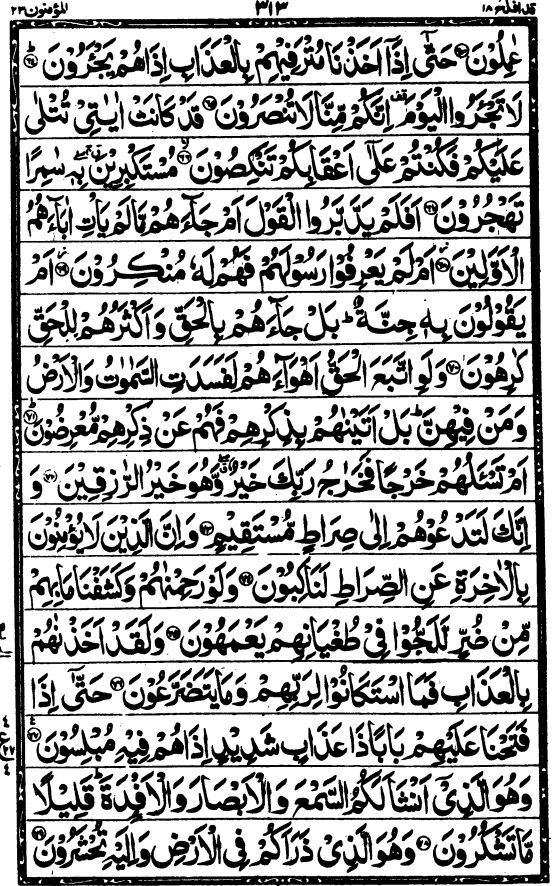 قد افلح ۱۸ ۳۱۳ المؤمنون ۲۳
عٰمِلُوْنَ ﴿۶۳﴾ حَتّٰۤى اِذَاۤ اَخَذْنَا مُتْرَفِیْهِمْ بِالْعَذَابِ اِذَا هُمْ یَجْـَٔرُوْنَ ﴿۶۴﴾ؕ
لَا تَجْـَٔرُوا الْیَوْمَ۫ اِنَّكُمْ مِّنَّا لَا تُنْصَرُوْنَ ﴿۶۵﴾ قَدْ كَانَتْ اٰیٰتِیْ تُتْلٰى
عَلَیْكُمْ فَكُنْتُمْ عَلٰۤى اَعْقَابِكُمْ تَنْكِصُوْنَ ﴿۶۶﴾ۙ مُسْتَكْبِرِیْنَ ۖۗ بِهٖ سٰمِرًا
تَهْجُرُوْنَ ﴿۶۷﴾ اَفَلَمْ یَدَّبَّرُوا الْقَوْلَ اَمْ جَآءَهُمْ مَّا لَمْ یَاْتِ اٰبَآءَهُمُ
الْاَوَّلِیْنَ ﴿۶۸﴾ؗ اَمْ لَمْ یَعْرِفُوْا رَسُوْلَهُمْ فَهُمْ لَهٗ مُنْكِرُوْنَ ﴿۶۹﴾ؗ اَمْ
یَقُوْلُوْنَ بِهٖ جِنَّةٌؕ بَلْ جَآءَهُمْ بِالْحَقِّ وَ اَكْثَرُهُمْ لِلْحَقِّ
كٰرِهُوْنَ ﴿۷۰﴾ وَ لَوِ اتَّبَعَ الْحَقُّ اَهْوَآءَهُمْ لَفَسَدَتِ السَّمٰوٰتُ وَ الْاَرْضُ
وَ مَنْ فِیْهِنَّؕ بَلْ اَتَیْنٰهُمْ بِذِكْرِهِمْ فَهُمْ عَنْ ذِكْرِهِمْ مُّعْرِضُوْنَ ﴿۷۱﴾ؕ
اَمْ تَسْـَٔلُهُمْ خَرْجًا فَخَرَاجُ رَبِّكَ خَیْرٌ ۖۗ وَّ هُوَ خَیْرُ الرّٰزِقِیْنَ ﴿۷۲﴾ وَ
اِنَّكَ لَتَدْعُوْهُمْ اِلٰى صِرَاطٍ مُّسْتَقِیْمٍ ﴿۷۳﴾ وَ اِنَّ الَّذِیْنَ لَا یُؤْمِنُوْنَ
بِالْاٰخِرَةِ عَنِ الصِّرَاطِ لَنٰكِبُوْنَ ﴿۷۴﴾ وَ لَوْ رَحِمْنٰهُمْ وَ كَشَفْنَا مَا بِهِمْ
مِّنْ ضُرٍّ لَّلَجُّوْا فِیْ طُغْیَانِهِمْ یَعْمَهُوْنَ ﴿۷۵﴾ وَ لَقَدْ اَخَذْنٰهُمْ
بِالْعَذَابِ فَمَا اسْتَكَانُوْا لِرَبِّهِمْ وَ مَا یَتَضَرَّعُوْنَ ﴿۷۶﴾ حَتّٰۤى اِذَا
فَتَحْنَا عَلَیْهِمْ بَابًا ذَا عَذَابٍ شَدِیْدٍ اِذَا هُمْ فِیْهِ مُبْلِسُوْنَ ﴿۷۷﴾
وَ هُوَ الَّذِیْۤ اَنْشَاَ لَكُمُ السَّمْعَ وَ الْاَبْصَارَ وَ الْاَفْـِٕدَةَؕ قَلِیْلًا
مَّا تَشْكُرُوْنَ ﴿۷۸﴾ وَ هُوَ الَّذِیْ ذَرَاَكُمْ فِی الْاَرْضِ وَ اِلَیْهِ تُحْشَرُوْنَ ﴿۷۹﴾